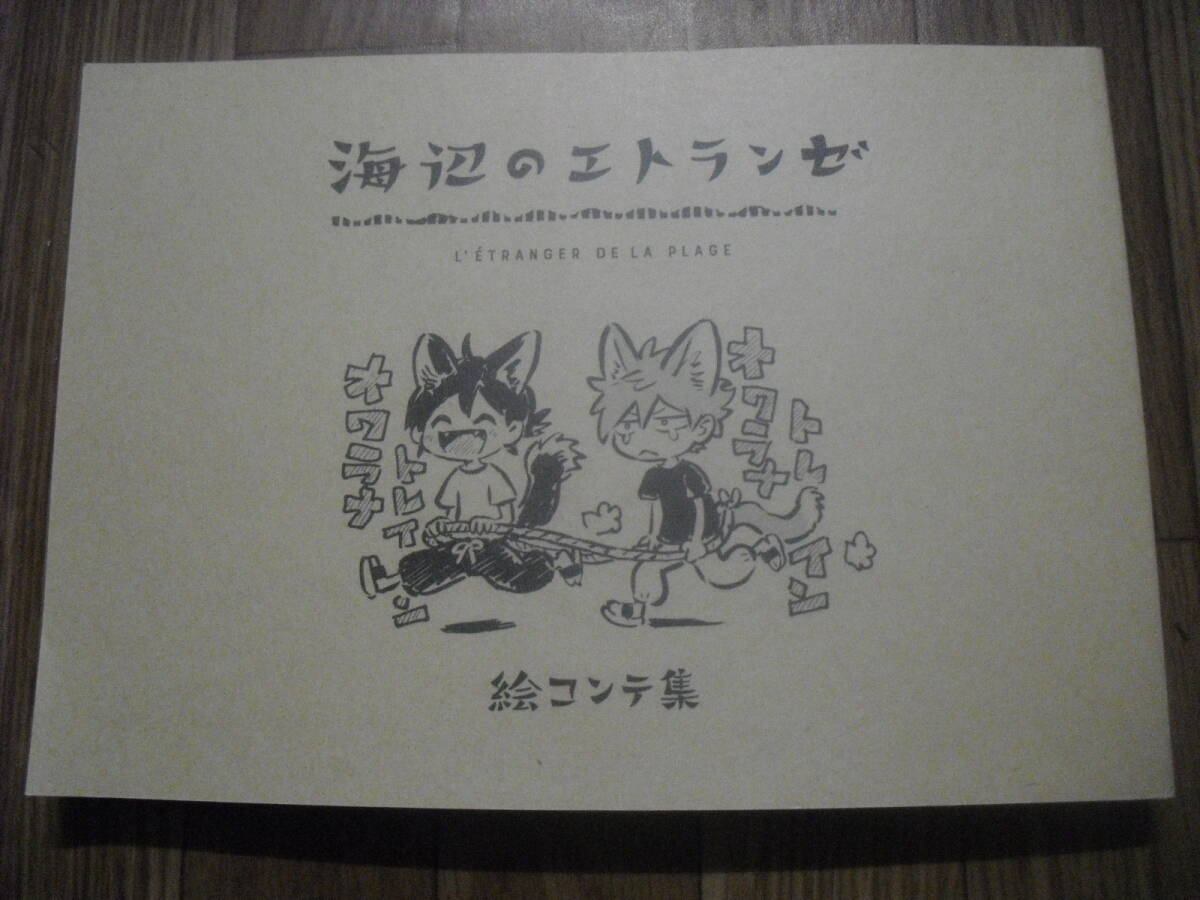 海辺のエトランゼ
L'ÉTRANGER DE LA PLAGE
オワラナ
トレイン
オワラナ
トレイン
絵コンテ集